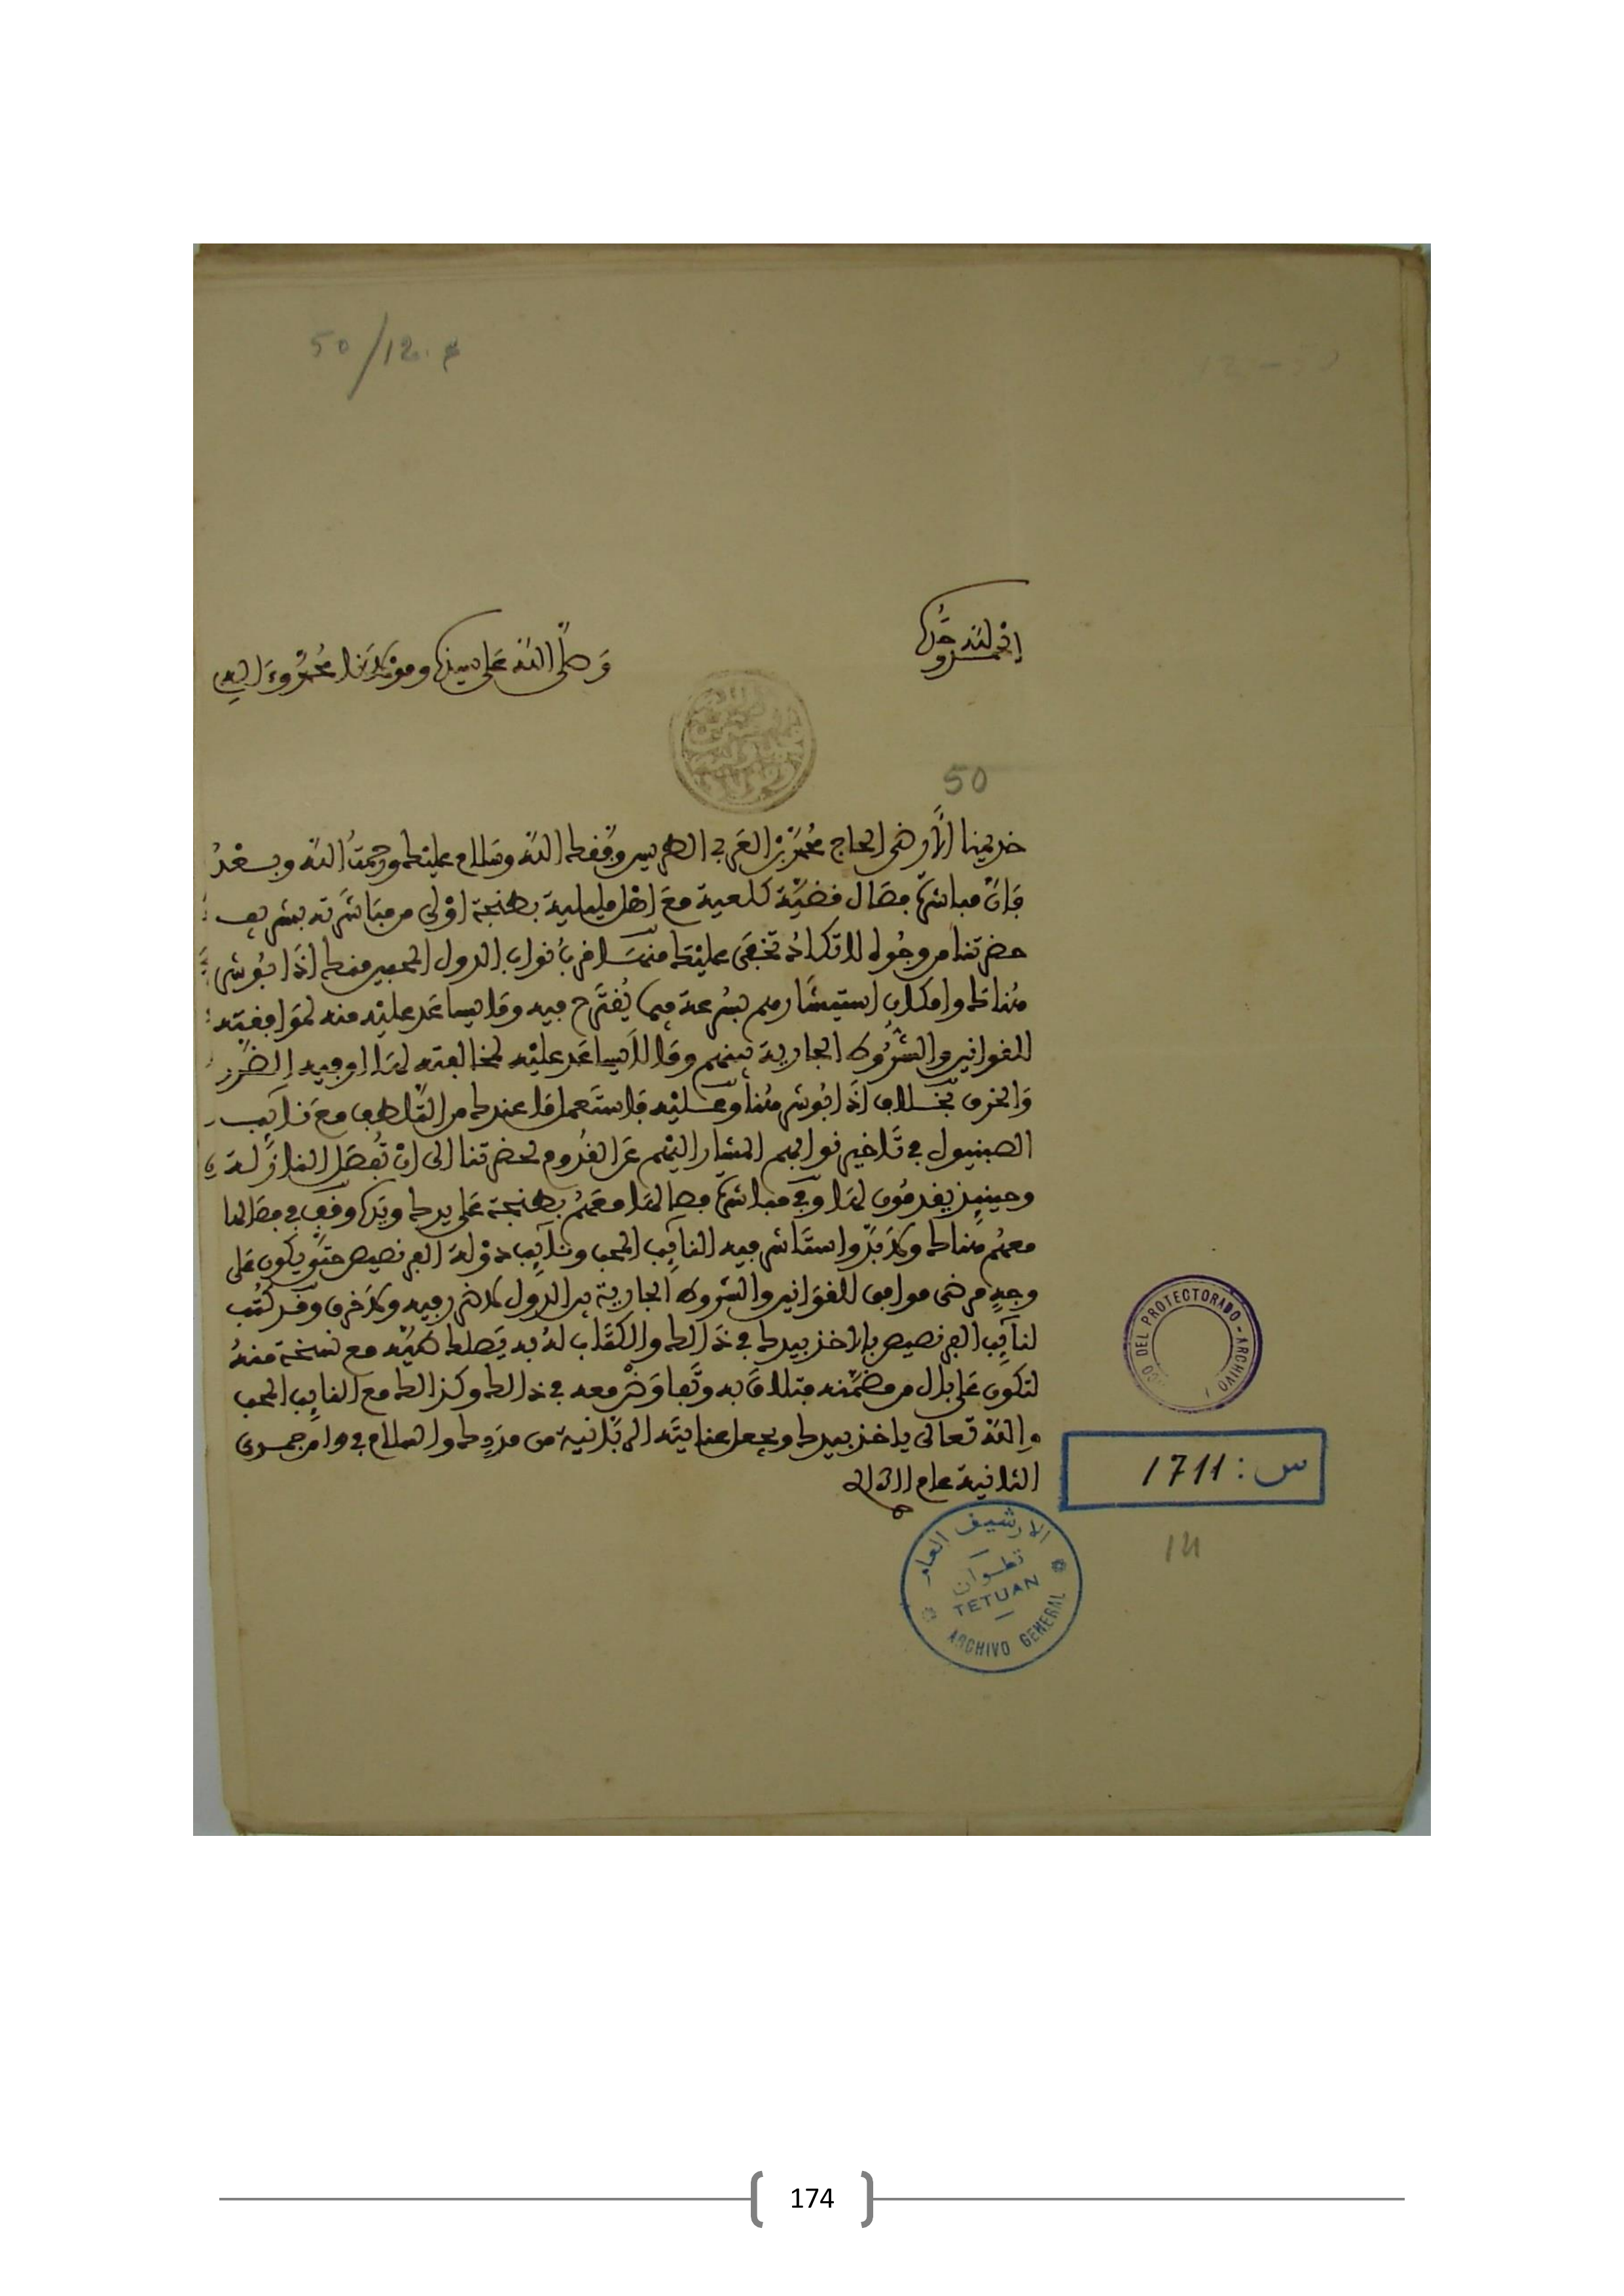 50/12.
الحمد لله وحده
وصلى الله على سيدنا ومولانا محمد وءاله
50
خديمنا الأرضى الحاج محمد بن العربي الطريس وفقك الله وسلام عليك ورحمت الله وبعد
فإن مباشرة فصال قضية كلعية مع اهل مليلية بطنجة اولى من مباشرته بشريف
حضرتنا من وجوه لا تكاد تخفى عليك منها قرب نواب الدول المحبين منك اذا بوشر
هناك وامكان استيشارهم بسرعة فيما يقترح فيه وما يساعد عليه منه لموافقته
للقوانين والشروط الجارية بينهم وما لا يساعد عليه لمخالفته لها او فيه الضرر
والخرق بخلاف اذا بوشر هنا وعليه فاستعمل ما عندك من التلطف مع نايب
الصبنيول في تاخير نوابهم المشار اليهم عن القدوم لحضرتنا الى ان تفصل النازلة
وحينئذ يقدمون لها وفي مباشرة فصالها معهم بطنجة على يدك وقف في فصالها
معهم هناك ولا بد واستاشر فيه النايب المحب ونايب دولة الفرنصيص حتى يكون على
وجه مرضي موافق للقوانين والشروط الجارية بين الدول لا ضرر فيه ولا خرق وقد كتب
لنايب الفرنصيص بالاخذ بيدك في ذالك والكتاب له به يصلك طيه مع نسخة منه
لتكون على بال من مضمنه فتلاق به وتفاوض معه في ذالك وكذالك مع النايب المحب
والله تعالى ياخذ بيدك ويجعل عنايته الربانية من مددك والسلام في جمدى
الثانية عام
DEL PROTECTORADO - ARCHIVO
س: 1711
الارشيف العام
تطوان
TETUAN
ARCHIVO GENERAL
174